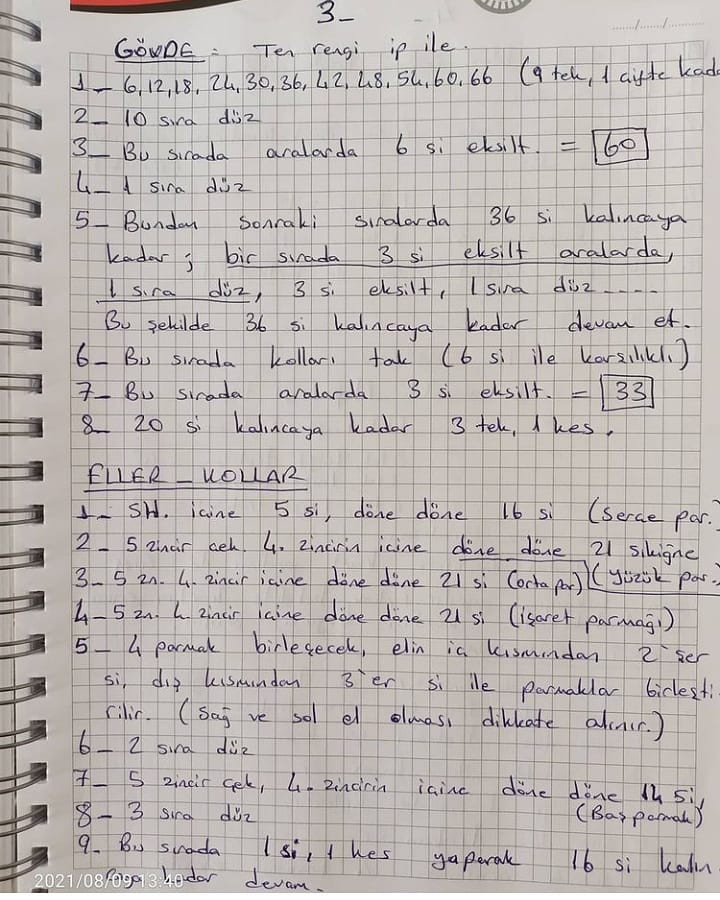 3-
GÖVDE : Ten rengi ip ile.
1- 6,12,18, 24, 30, 36, 42, 48, 54, 60, 66 (9 tek, 1 çifte kada
2- 10 sıra düz
3- Bu sırada aralarda 6 si eksilt. = 60
4- 1 sıra düz
5- Bundan sonraki sıralarda 36 si kalıncaya
kadar ; bir sırada 3 si eksilt aralarda,
1 sıra düz, 3 si eksilt, 1 sıra düz ----
Bu şekilde 36 si kalıncaya kadar devam et.
6- Bu sırada kolları tak (6 si ile karşılıklı)
7- Bu sırada aralarda 3 si eksilt. = 33
8- 20 si kalıncaya kadar 3 tek, 1 kes.
ELLER - KOLLAR
1- SH. içine 5 si, döne döne 16 si (Serçe par.)
2- 5 zincir çek. 4. zincirin içine döne döne 21 sıkiğne
3- 5 zn. 4. zincir içine döne döne 21 si (orta par) (Yüzük par.)
4- 5 zn. 4. zincir içine döne döne 21 si (işaret parmağı)
5- 4 parmak birleşecek, elin iç kısmından 2'şer
si, dış kısmından 3'er si ile parmaklar birleşti
rilir. (Sağ ve sol el olması dikkate alınır.)
6- 2 sıra düz
7- 5 zincir çek, 4. zincirin içine döne döne 14 si,
8- 3 sıra düz (Baş parmak)
9- Bu sırada 1 si, 1 kes yaparak 16 si kalın
kadar devam.
2021/08/09 13:40